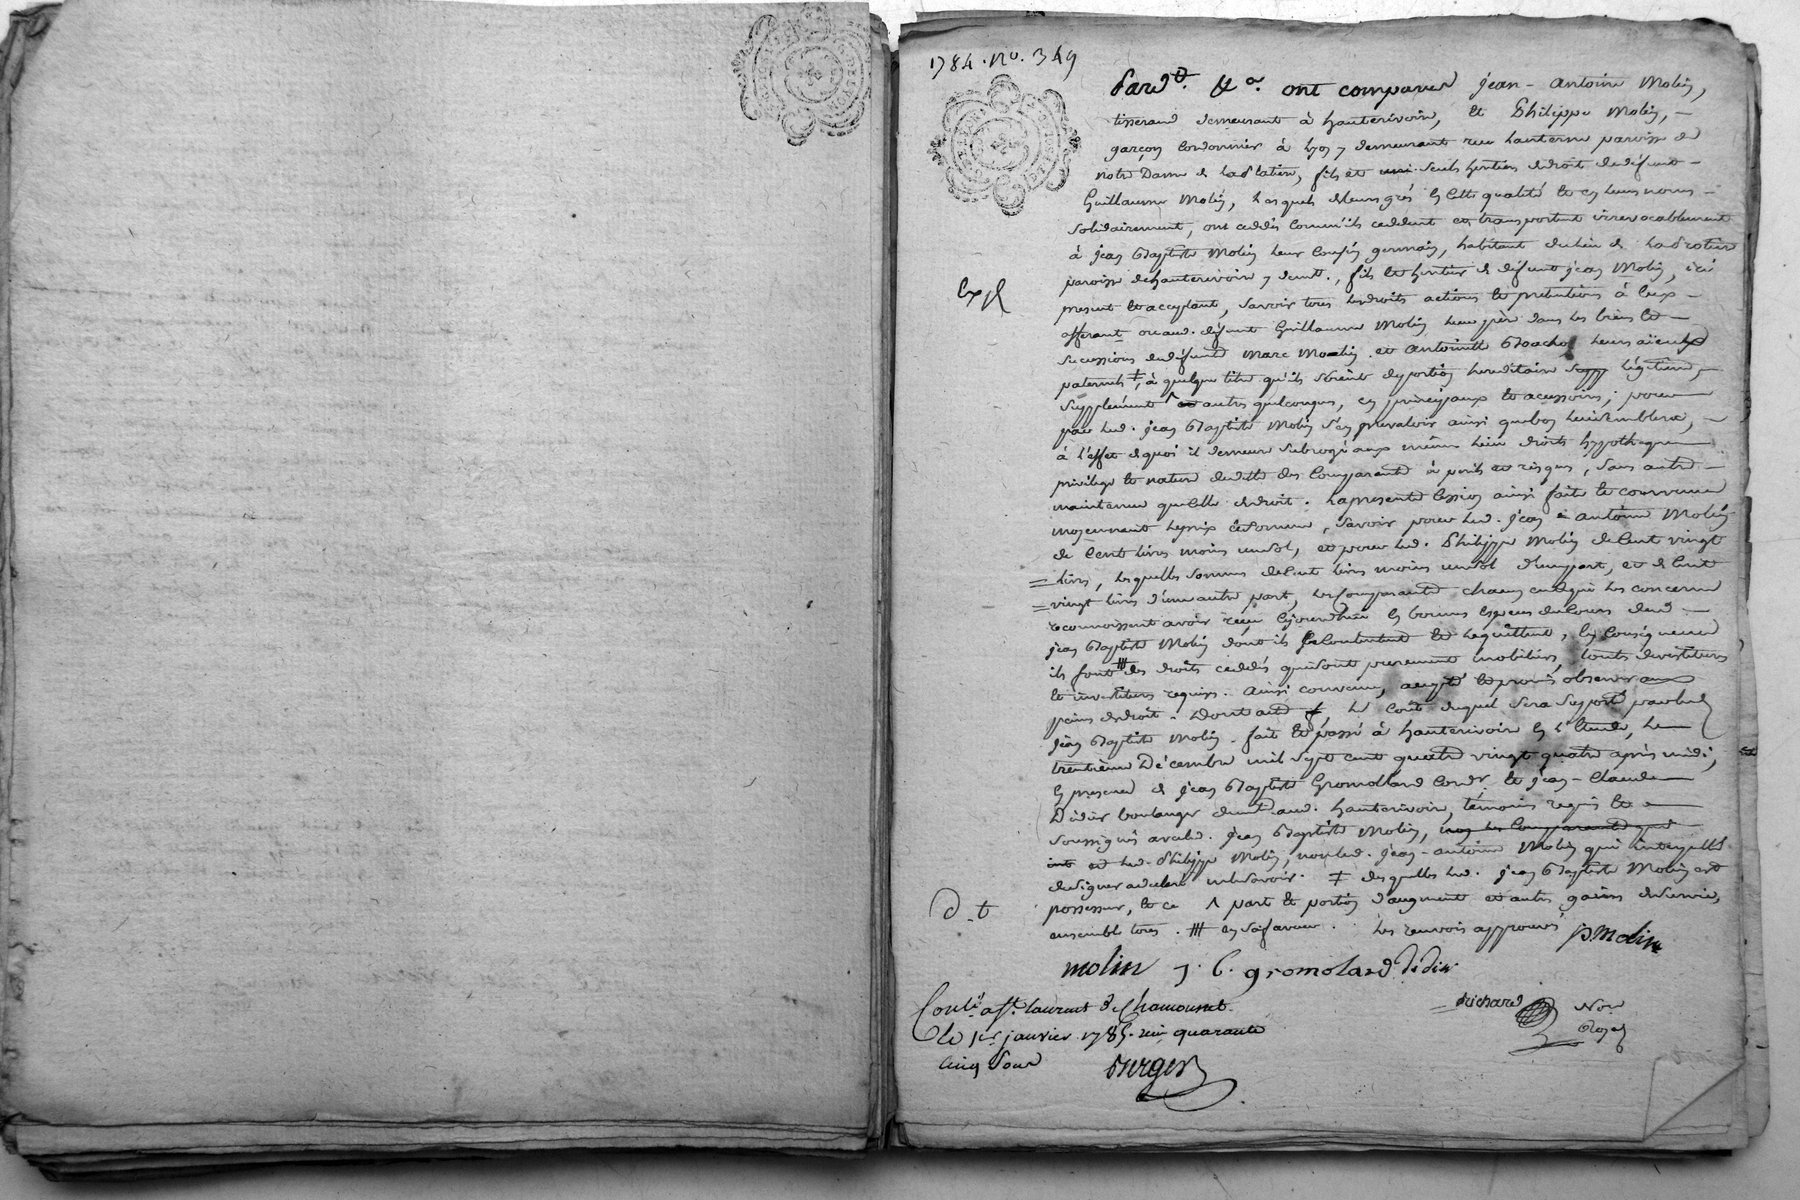 1784. No. 349
Pard.t &a. ont comparus jean-antoine Molin,
tisserand demeurant à hauterivoire, et Philippe Molin,
garçon Cordonnier à Lyon y demeurant rue Lanterne paroisse de
notre Dame de La platiere, fils et seuls heritiers de droit de defunt
Guillaume Molin, Lesquels de leurs grés En cette qualité et en leurs noms
solidairement, ont cedés comm'ils cedent et transportent irrevocablement
à jean Baptiste Molin leur Cousin germain, habitant du lieu de
paroisse de hauterivoire y demt., fils et heritier de defunt jean Molin, ici
Expé
present et acceptant, savoir tous les droits actions et pretentions à Eux
afferant ou aud. defunt Guillaume Molin leur père dans les biens et
successions de defunts Marc Molin et antoinette leurs aïeuls
paternels ‡, à quelque titre qu'ils soient de portion hereditaire légitime,
supplément ^ autres quelconques, en principaux et accessoires; pour
par led. jean Baptiste Molin s'en prevaloir ainsi que bon lui semblera,
à l'effet de quoi il demeure subrogé aux même lieu droits hypotheque
privilege et nature de dette des Comparants à perils et risques, sans autre
maintenue que Celle de droit. La presente Cession ainsi faite et convenue
moyennant le prix et somme, savoir pour led. jean antoine Molin
de Cent livres moins un sol, et pour led. Philippe Molin de Cent vingt
livres, lesquelles sommes de Cent livres moins un sol d'une part, et de Cent
vingt livres d'une autre part, les Comparants chacun en ce qui les concerne
reconnoissent avoir reçu Ejourdhui En bonnes Especes du Cours dud.
jean Baptiste Molin dont ils se Contentent et le quittent, En Consequence
ils font ⧻ des droits cedés qui sont purement mobiliers, toutes devestitures
et investitures requises. ainsi convenu, accepté et promis observer aux
peines de droit. Dont acte Le Coût duquel sera suporté par led.
jean Baptiste Molin. fait et passé à hauterivoire En l'Etude, le
trentième Décembre mil sept cent quatre vingt quatre après midi;
En presence de jean Baptiste Gromollard Cordr. et jean-Claude
Didier boulanger demt. aud. hauterivoire, témoins requis et
soussignés avec led. jean Baptiste Molin, non les Comparants qui
ont et led. Philippe Molin, non led. jean-antoine Molin qui interpellé
de signer a declaré ne le savoir. ‡ desquelles led. jean Baptiste Molin est
D.t
possesseur, et ce ^ part et portion d'augment et autres gains de survie,
ensemble tous. ⧻ en sa faveur. Les renvois approuvés P. Molin
molin J. B. gromolard didier
Conlé. a St. laurent de Chamousset
Le 1er janvier 1785. reçu quarante
Cinq Sous
richard Nore
Royal